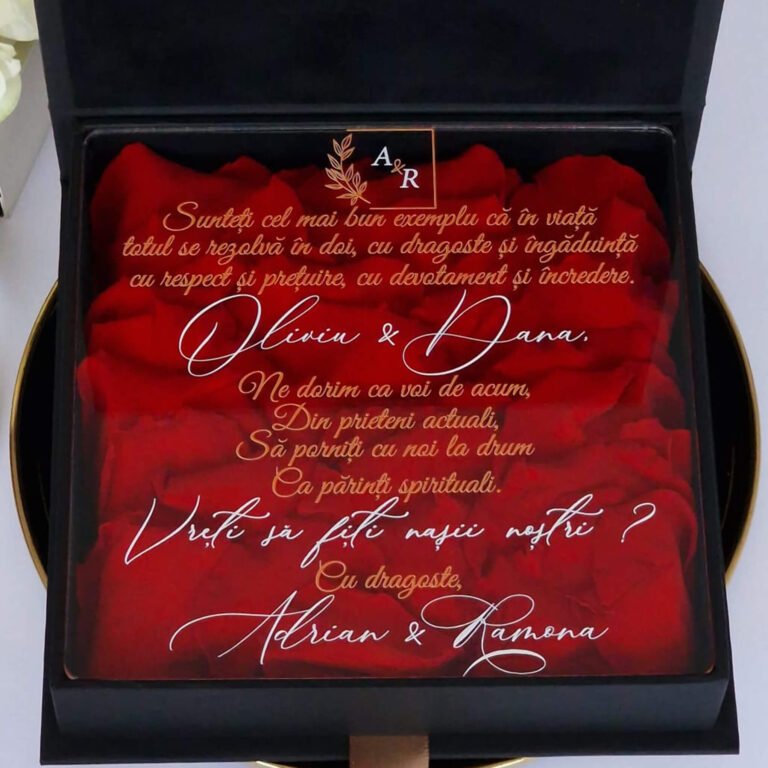 A & R
Sunteți cel mai bun exemplu că în viață
totul se rezolvă în doi, cu dragoste și îngăduință
cu respect și prețuire, cu devotament și încredere.
Oliviu & Dana.
Ne dorim ca voi de acum,
Din prieteni actuali,
Să porniți cu noi la drum
Ca părinți spirituali.
Vreți să fiți nașii noștri ?
Cu dragoste,
Adrian & Ramona